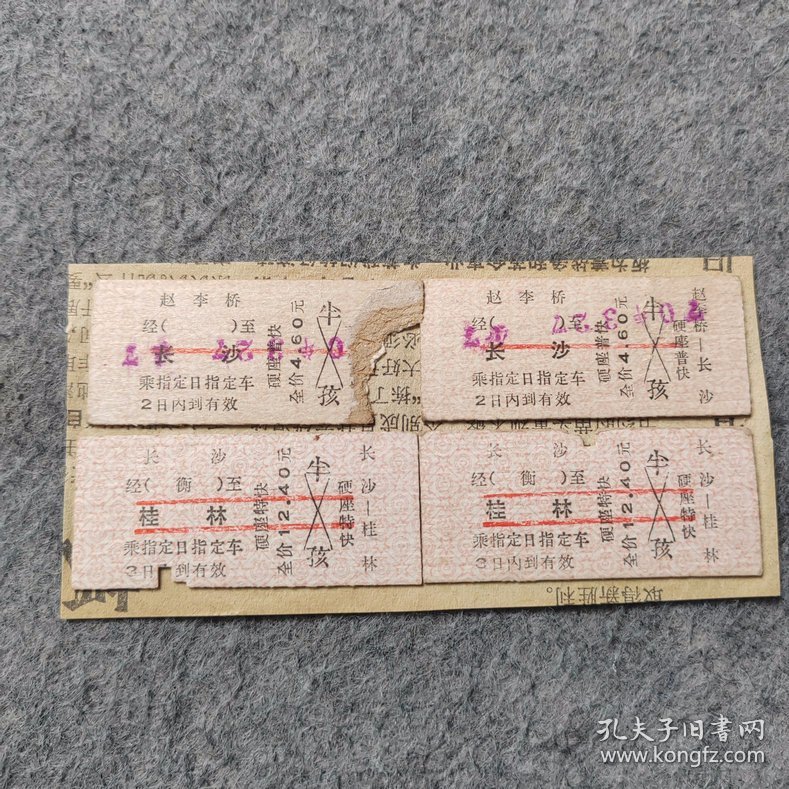 赵李桥
经( )至
长沙
乘指定日指定车
2日内到有效
硬座普快
全价4.60元
半
孩
赵李桥
经( )至
长沙
乘指定日指定车
2日内到有效
硬座普快
全价4.60元
半
孩
硬座普快
赵李桥—长沙
长沙
经(衡)至
桂林
乘指定日指定车
3日内到有效
硬座特快
全价12.40元
半
孩
硬座特快
长沙—桂林
长沙
经(衡)至
桂林
乘指定日指定车
3日内到有效
硬座特快
全价12.40元
半
孩
硬座特快
长沙—桂林
取得新胜利。
孔夫子旧书网
www.kongfz.com